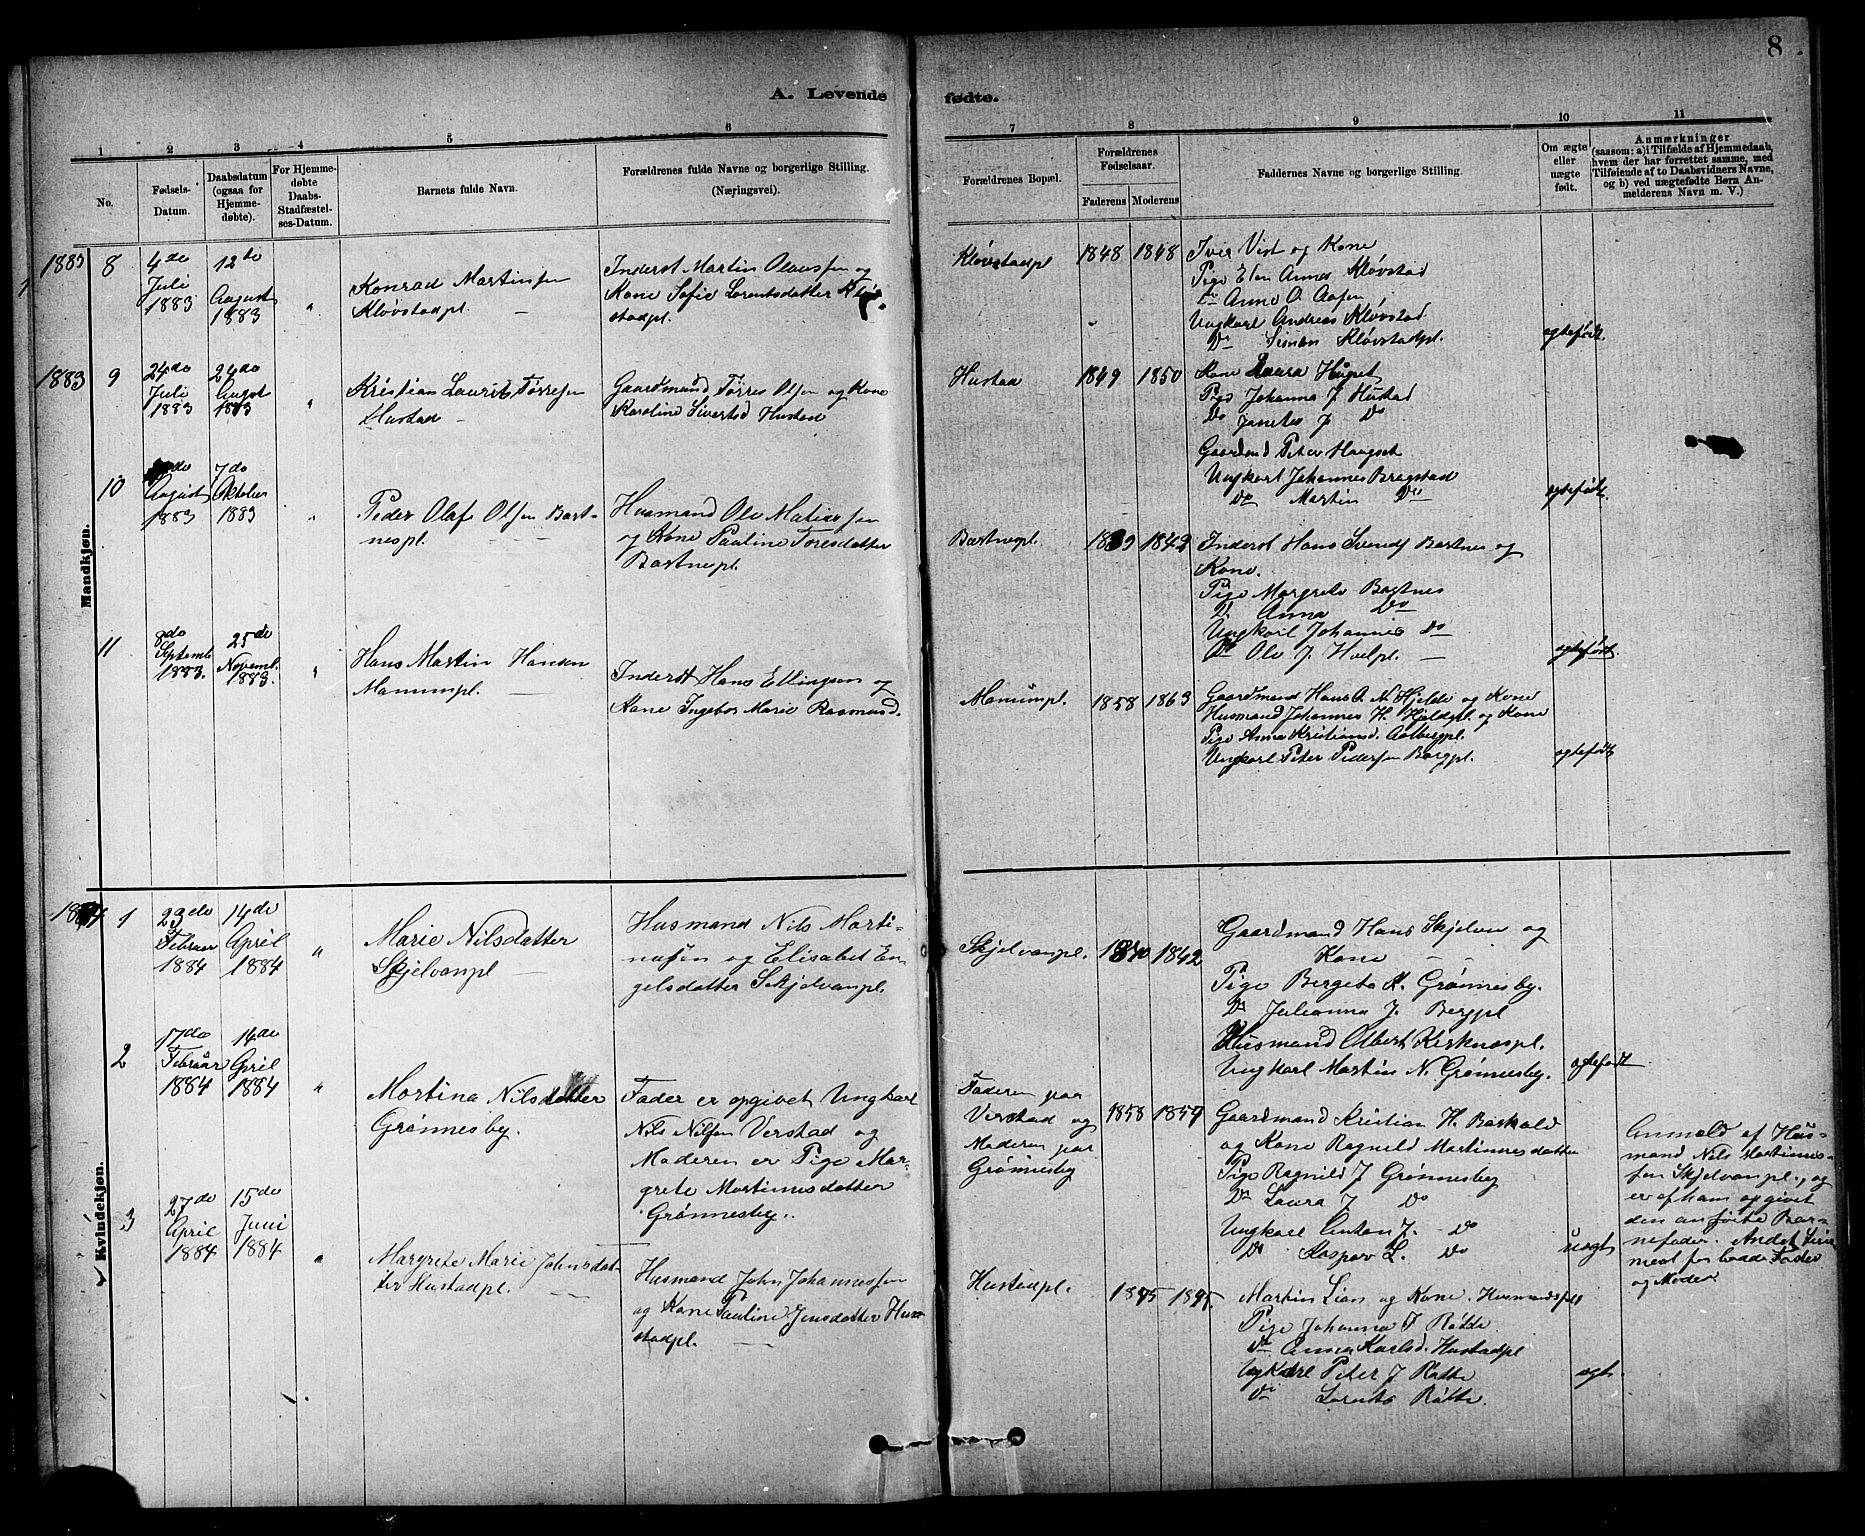 8
A. Levende fødte.
1 2 3 4 5 6 7 8 9 10 11
No.
Fødsels-
Datum.
Daabsdatum
(ogsaa for
Hjemme-
døbte).
For Hjemme-
døbte
Daabs-
Stadfæstel-
ses-Datum.
Barnets fulde Navn.
Forældrenes fulde Navne og borgerlige Stilling.
(Næringsvei).
Forældrenes Bopæl.
Forældrenes
Fødselsaar.
Faderens Moderens
Faddernes Navne og borgerlige Stilling.
Om ægte
eller
uægte
født.
Anmærkninger
(saasom: a) i Tilfælde af Hjemmedaab,
hvem der har forrettet samme, med
Tilføiende af to Daabsvidners Navne,
og b) ved uægtefødte Børn An-
melderens Navn m. V.)
Mandkjøn.
1883 8
4de
Juli
1883
12te
August
1883
"
Konrad Martinsen
Kløvstadpl.
Inderst Martin Olaussen og
Kone Sofie Lorentsdatter Kløv-
stadpl.
Kløvstadpl
1848 1848
Iver Vist og Kone
Pige Elen Anna Kløvstad
Do Anne O. Aasen
Ungkarl Andreas Kløvstad
Do Simon Kløvstadpl.
ægtefødt.
1883 9
24de
Juli
1883
24de
August
1883
"
Kristian Laurits Tørresen
Hustad
Gaardmand Tørres Olsen og Kone
Karoline Sivertsd Hustad
Hustad
1849 1850
Kone Laura
Pige Johanna J Hustad
Do J Do
Gaardmd Peter Haugset
Ungkarl Johannes Bragstad
Do Martin Do
ægtefødt.
10
August
1883
7de
Oktober
1883
"
Peder Olaf Olsen Bart-
nespl.
Husmand Ole
og Kone Pauline Toresdatter
Bartnespl.
Bartnespl.
1839 1842
Inderst Hans Svends Bartnes og
Kone.
Pige Margrete Bartnes
D. Anna Do
Ungkarl Johannes Do
Do Ole J.
ægtefødt
11
8de
Septemb.
1883.
25de
Novemb.
1883.
"
Hans Martin Hansen
Manumpl.
Inderst Hans Ellingsen og
Kone Ingebor Marie Rasmusd.
Manumpl.
1858 1863
Gaardmand Hans A. N. Hjelde og Kone
Husmand Johannes H. Hjeldepl. og Kone
Pige Anna Kristiansd. Aalbergpl.
Ungkarl Peter Pedersen Bargpl.
ægtefødt
Kvindekjøn.
1884 1
23de
Februar
1884
14de
April
1884
"
Marie Nilsdatter
Skjelvanpl
Husmand Nils Marti-
nusen og Elisabet En-
gelsdatter Skjelvanpl.
Skjelvanpl.
1840 1842
Gaardmand Hans Skjelvan og
Kone
Pige Bergete K. Grønnesby.
Do Julianna J. Bergpl
Husmand Albert Kirknespl.
Ungkarl Martin N. Grønnesby.
ægtefødt
2
17de
Februar
1884
14de
April
1884
"
Martina Nilsdatter
Grønnesby.
Fader er opgivet Ungkarl
Nils Nilsen Verstad og
Moderen er Pige Mar-
grete Martinusdatter
Grønnesby.
Faderen paa
Verstad og
Moderen paa
Grønnesby
1858 1857
Gaardmand Kristian H.
og Kone Ragnild Martinusdatter
Pige Ragnild J Grønnesby
Do Laura J Do
Ungkarl Anton J. Do
Do Kaspar L. Do
uægt
Anmeld af Hus-
mand Nils Martinus-
sen Skjelvanpl., og
er af ham opgivet
den anførte Bar-
nefader. Andet Leier-
maal for baade Fader
og Moder
3
27de
April
1884
15de
Juni
1884
"
Margrete Marie Johnsdat-
ter Hustadpl.
Husmand John Johannessen
og Kone Pauline Jensdatter Hu-
stadpl.
Hustadpl.
1845 1845.
Martin Lian og Kone. Husmandsfolk
Pige Johanna J Røtte
Do Anna Karlsd. Hustadpl
Ungkarl Peter J Røtte
Do Lorents Røtte.
ægt